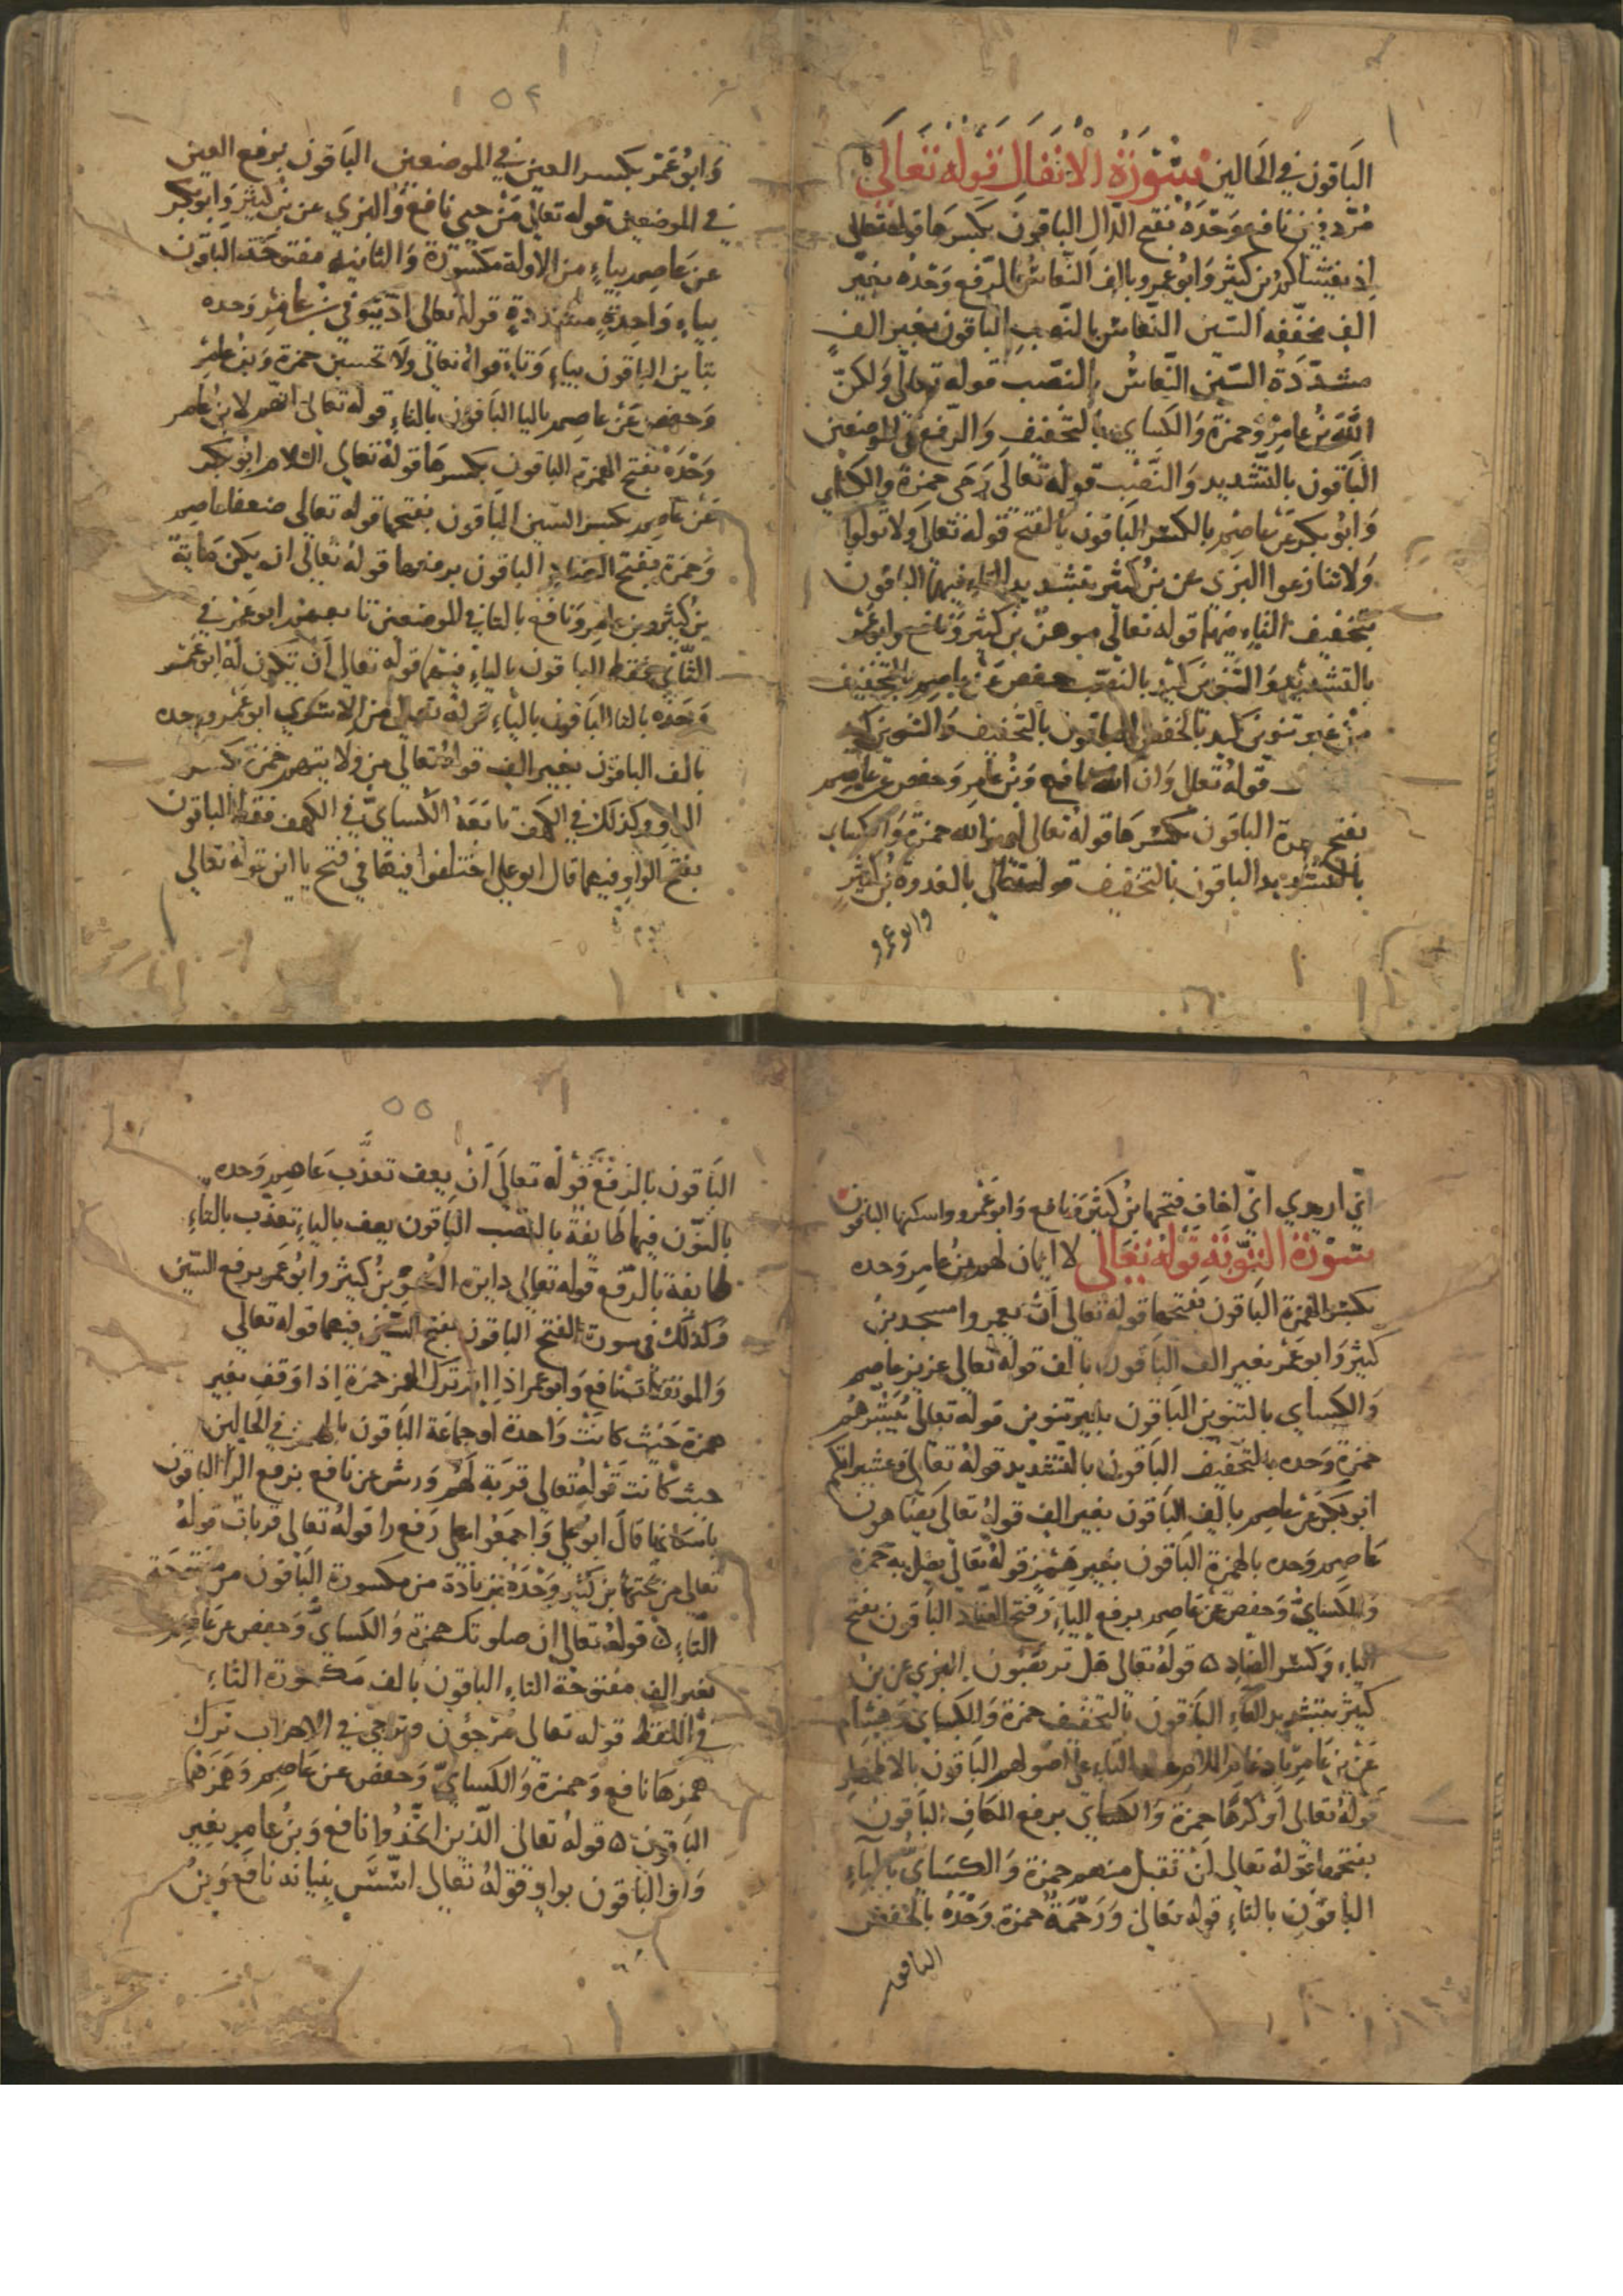 الباقون في الحالين سورة الانفال قوله تعالى
مردفين نافع وحده بفتح الدال الباقون بكسرها قوله تعالى
اذ يغشاكم بن كثير وابو عمرو بالف النعاس بالرفع وحده بغير
الف مخففه السين النعاس بالنصب الباقون بغير الف
مشددة السين النعاس بالنصب قوله تعالى ولكن
الله بن عامر وحمزة والكساي بالتخفيف والرفع في الموضعين
الباقون بالتشديد والنصب قوله تعالى رمى حمزة والكساي
وابو بكر عن عاصم بالكسر الباقون بالفتح قوله تعالى ولا تولوا
ولا تنازعوا البزي عن بن كثير بتشديد التاء فيهما الباقون
بتخفيف التاء فيهما قوله تعالى موهن بن كثير ونافع وابو عمر
بالتشديد والتنوين كيد بالنصب حفص عن عاصم بالتخفيف
من غير تنوين كيد بالخفض الباقون بالتخفيف والتنوين كيد
قوله تعالى وان الله نافع وبن عامر وحفص عن عاصم
بفتح الباقون بكسرها قوله تعالى ليميز الله حمزة والكساي
بالتشديد الباقون بالتخفيف قوله تعالى بالعدوة بن كثير
وابو عمرو
١٥٤
وابو عمر بكسر العين في الموضعين الباقون برفع العين
في الموضعين قوله تعالى من حيي نافع والبزي عن بن كثير وابو بكر
عن عاصم بياء من الاولة مكسورة والثانيه مفتوحة الباقون
بياء واحدة مشددة قوله تعالى اذ يتوفى بن عامر وحده
بتاين الباقون بياء وتاء قوله تعالى ولا تحسبن حمزة وبن عامر
وحفص عن عاصم باليا الباقون بالتاء قوله تعالى انهم لا بن عامر
وحده بفتح الهمزة الباقون بكسرها قوله تعالى السلام ابو بكر
عن عاصم بكسر السين الباقون بفتحها قوله تعالى ضعفا عاصم
وحمزة بفتح الضاد الباقون برفعها قوله تعالى ان يكن مايه
بن كثير وبن عامر ونافع بالتا في الموضعين تابعهم ابو عمر في
الثاني فقط الباقون بالياء فيهما قوله تعالى ان تكون له ابو عمر
وحده بالتا الباقون بالياء قوله تعالى من الاسرى ابو عمر وحده
بالف الباقون بغير الف قوله تعالى من ولايتهم حمزة بكسر
الواو وكذلك في الكهف تابعه الكساي في الكهف فقط الباقون
بفتح الواو فيهما قال ابو علي اختلفوا فيها في فتح يا اين قوله تعالى
اني ارى اني اخاف فتحها بن كثير ونافع وابو عمرو واسكنها الباقون
سورة التوبة قوله تعالى لا ايمان لهم بن عامر وحده
بكسر الهمزة الباقون بفتحها قوله تعالى ان يعمروا مسجد بن
كثير وابو عمر بغير الف الباقون بالف قوله تعالى عزيز عاصم
والكساي بالتنوين الباقون بغير تنوين قوله تعالى يبشرهم
حمزة وحده بالتخفيف الباقون بالتشديد قوله تعالى وعشيراتكم
ابو بكر عن عاصم بالف الباقون بغير الف قوله تعالى يضاهون
عاصم وحده بالهمزة الباقون بغير همز قوله تعالى يضل به حمزة
والكساي وحفص عن عاصم برفع الياء وفتح الضاد الباقون بفتح
الياء وكسر الضاد ٥ قوله تعالى هل تربصون البزي عن بن
كثير بتشديد التاء الباقون بالتخفيف حمزة والكساي وهشام
عن بن عامر بادغام اللام عند التاء على اصولهم الباقون بالاظهار
قوله تعالى او كرها حمزة والكساي برفع الكاف الباقون
بفتحها قوله تعالى ان تقبل منهم حمزة والكساي بالياء
الباقون بالتاء قوله تعالى ورحمة حمزة وحده بالخفض
الباقون
٥٥
الباقون بالرفع قوله تعالى ان يعف تعذب عاصم وحده
بالنون فيهما طايفة بالنصب الباقون يعف بالياء تعذب بالتاء
طايفة بالرفع قوله تعالى دايرة السوء بن كثير وابو عمر برفع السين
وكذلك في سورة الفتح الباقون بفتح السين فيهما قوله تعالى
والموتفكات نافع وابو عمر اذا ترك الهمز حمزة اذا وقف بغير
همزة حيث كانت واحدة او جماعة الباقون بالهمز في الحالين
حيث كانت قوله تعالى قربة لهم ورش عن نافع برفع الرا الباقون
باسكانها قال ابو علي واجمعوا على رفع را قوله تعالى قربات قوله
تعالى من تحتها بن كثير وحده بزيادة من مكسورة الباقون من مفتحة
التاء ٥ قوله تعالى ان صلوتك حمزة والكساي وحفص عن عاصم
بغير الف مفتوحة التاء الباقون بالف مكسورة التاء
في اللفظ قوله تعالى مرجؤن وترجي في الاحزاب ترك
همزها نافع وحمزة والكساي وحفص عن عاصم وهمزهما
الباقون ٥ قوله تعالى الذين اتخذوا نافع وبن عامر بغير
واو الباقون بواو قوله تعالى اسس بنيانه نافع وبن